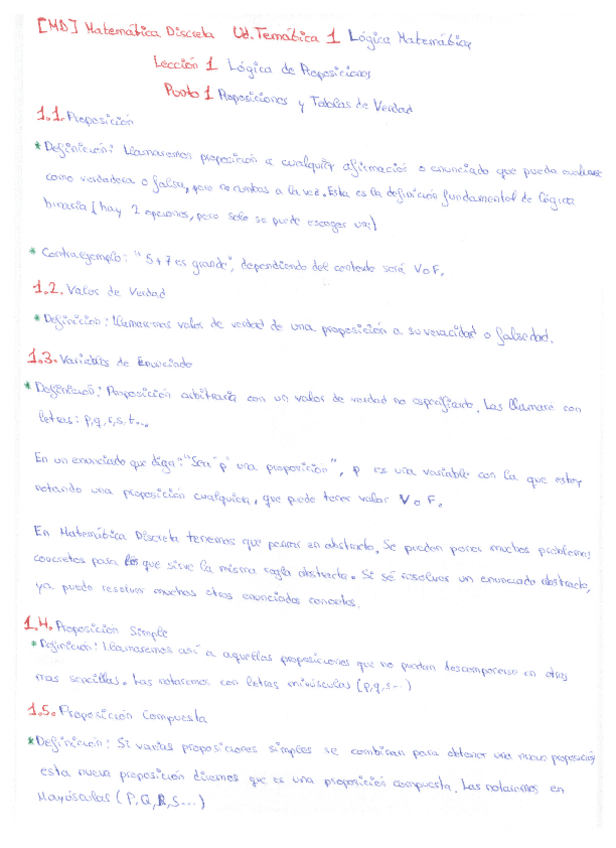 [MD] Matemática Discreta Ud. Temática 1 Lógica Matemática
Lección 1 Lógica de Proposiciones
Punto 1 Proposiciones y Tablas de Verdad
1.1. Proposición
* Definición: Llamaremos proposición a cualquier afirmación o enunciado que pueda evaluarse
como verdadera o falsa, pero no ambas a la vez. Esta es la definición fundamental de lógica
binaria (hay 2 opciones, pero solo se puede escoger una)
* Contraejemplo: "5+7 es grande", dependiendo del contexto será V o F.
1.2. Valor de Verdad
* Definición: Llamaremos valor de verdad de una proposición a su veracidad o falsedad.
1.3. Variables de Enunciado
* Definición: Proposición arbitraria con un valor de verdad no especificado. Las llamaré con
letras: p,q,r,s,t...
En un enunciado que diga: "Sea 'p' una proposición", p es una variable con la que estoy
notando una proposición cualquiera, que puede tener valor V o F.
En Matemática Discreta tenemos que pensar en abstracto. Se pueden poner muchos problemas
concretos para los que sirve la misma regla abstracta. Si sé resolver un enunciado abstracto,
ya puedo resolver muchos otros enunciados concretos.
1.4. Proposición Simple
* Definición: Llamaremos así a aquellas proposiciones que no puedan descomponerse en otras
mas sencillas. Las notaremos con letras minúsculas (p,q,s...)
1.5. Proposición Compuesta
* Definición: Si varias proposiciones simples se combinan para obtener una nueva proposición,
esta nueva proposición diremos que es una proposición compuesta. Las notaremos en
Mayúsculas (P,Q,R,S...)